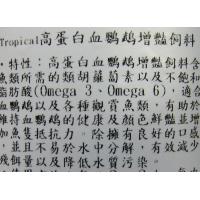 Tropical高蛋白血鸚鵡增豔飼料
・特性：高蛋白血鸚鵡增豔飼料含
魚類所需的類胡蘿蔔素以及不飽和
脂肪酸(Omega 3、Omega 6)，適合
血鸚鵡以及各種觀賞魚類，有助於
維持血鸚鵡的健康及顏色鮮豔並增
加魚隻抵抗力。除擁有良好的口感
，並且不易於水中分解，有效減少
殘餌量以及水質污染。